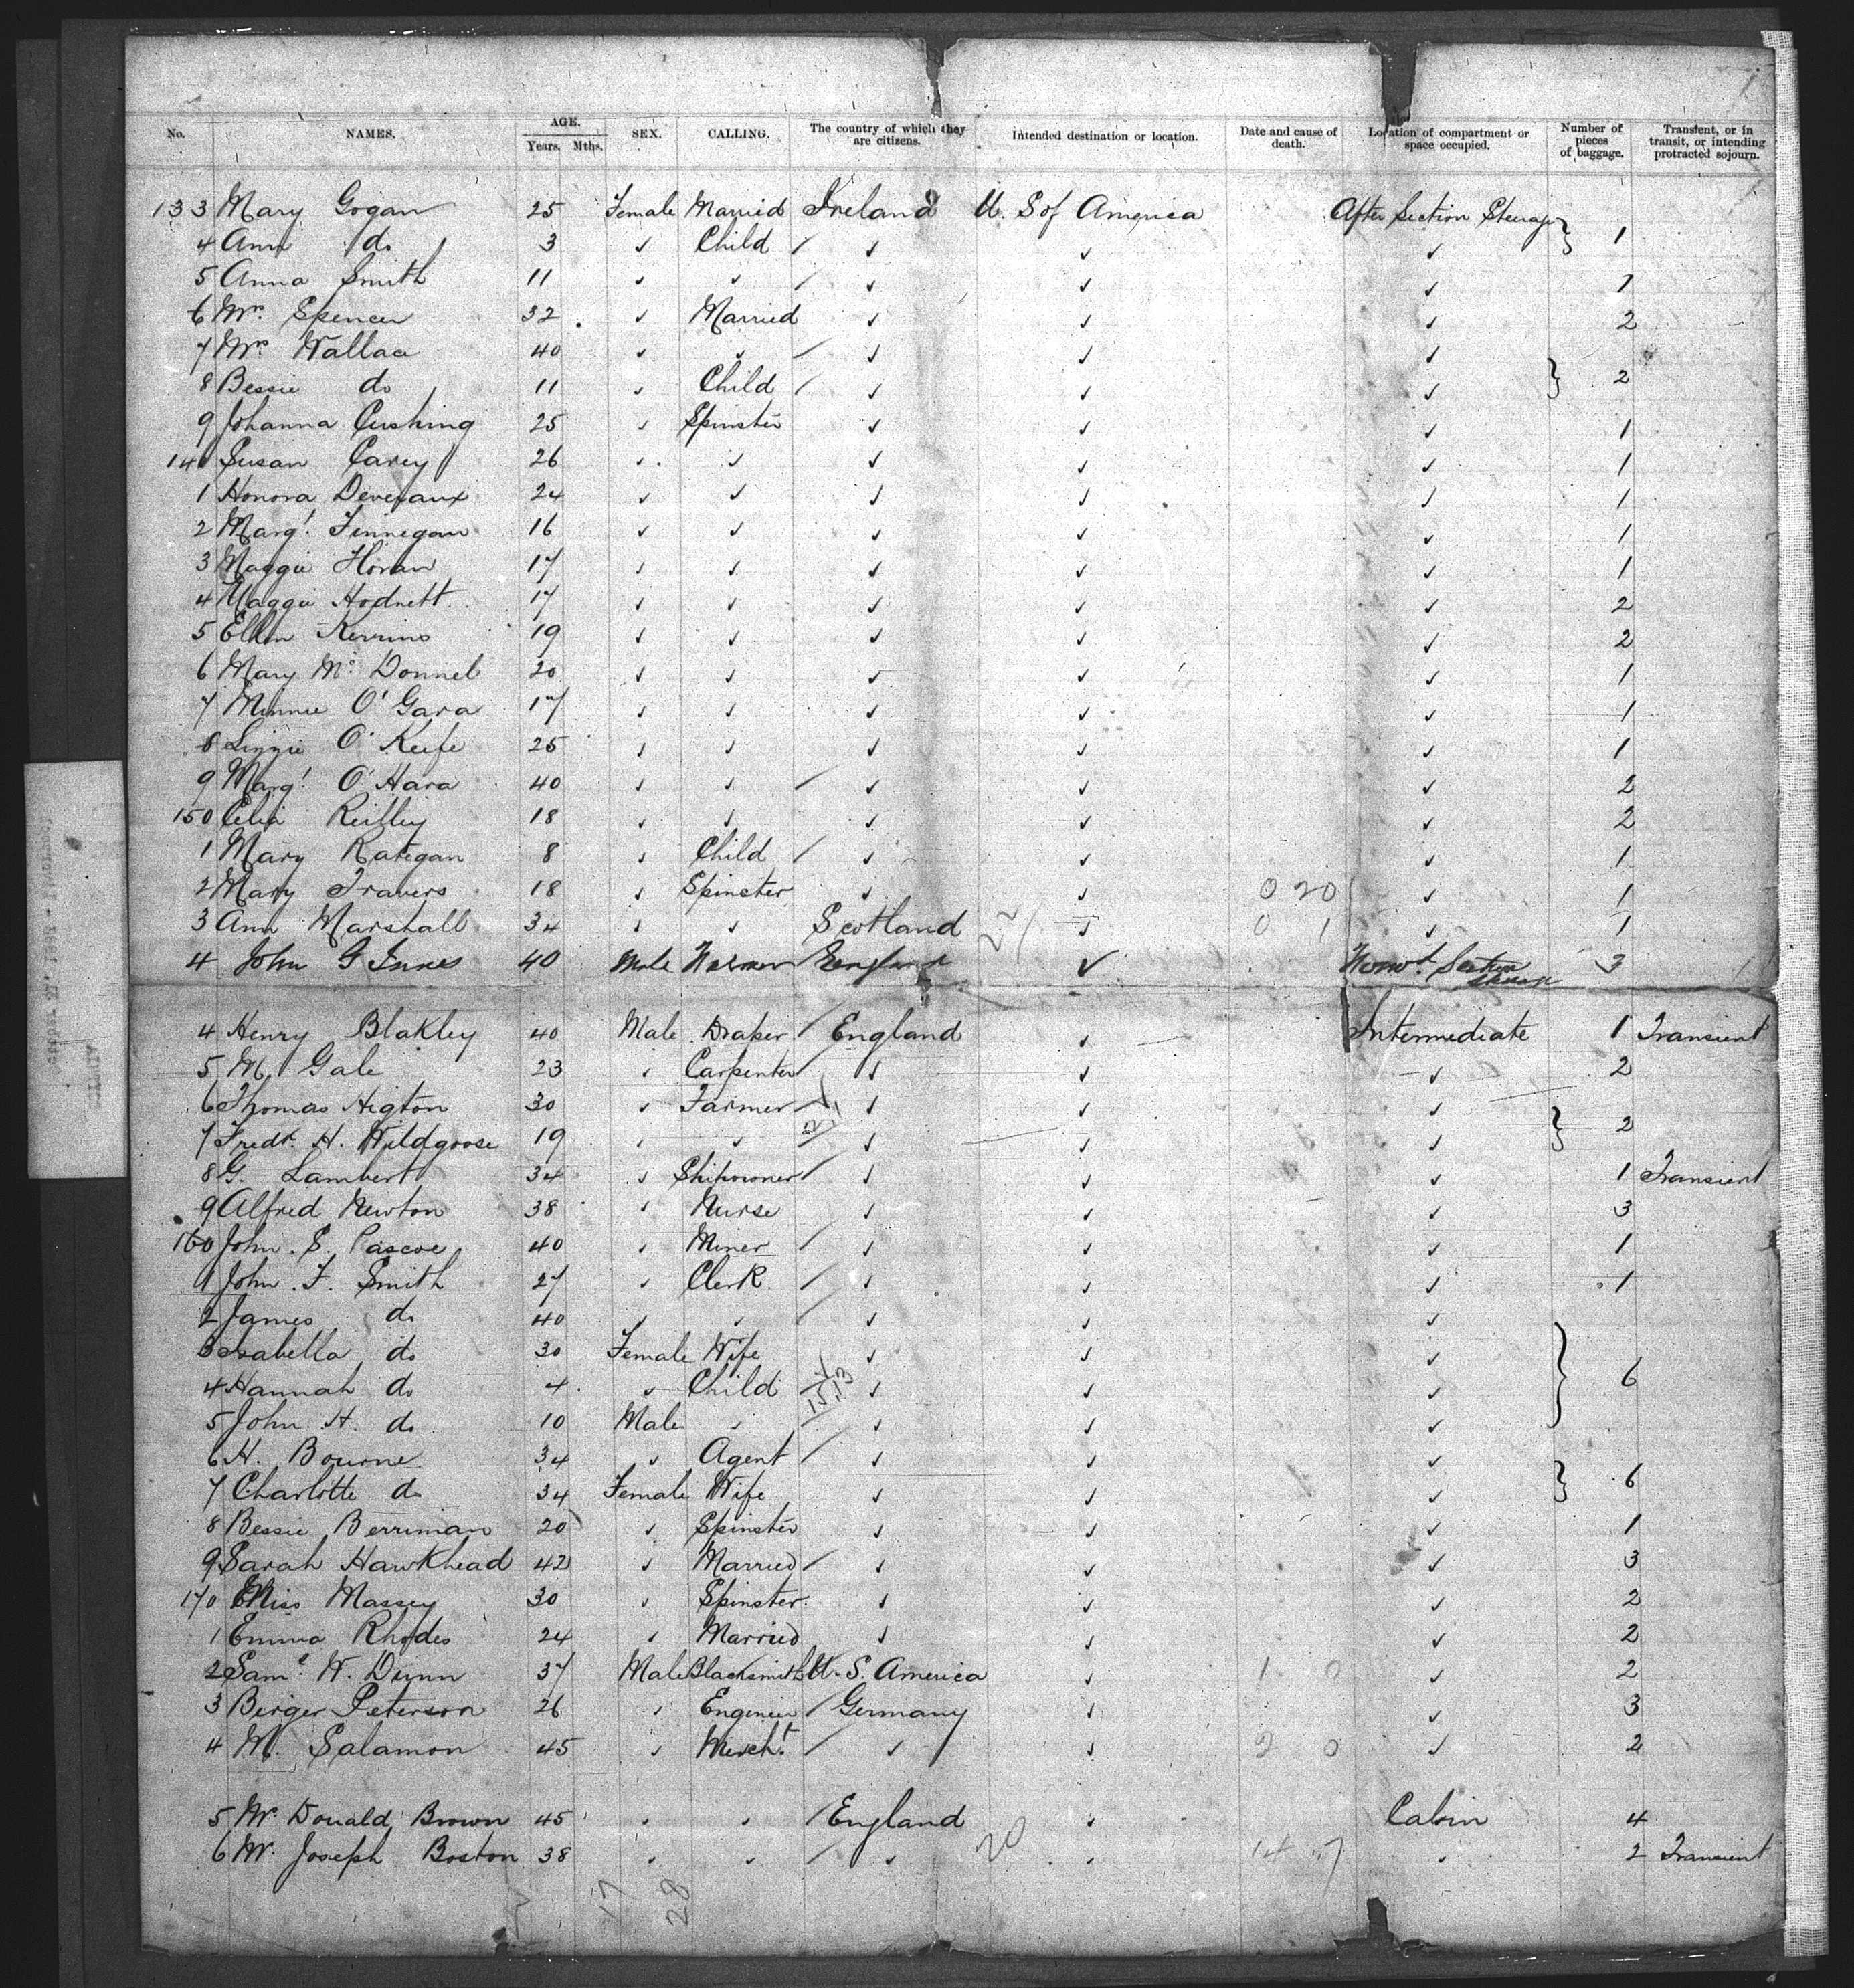 No. NAMES. AGE. Years. Mths. SEX. CALLING. The country of which they are citizens. Intended destination or location. Date and cause of death. Location of compartment or space occupied. Number of pieces of baggage. Transient, or in transit, or intending protracted sojourn.
133 Mary Gogan 25 Female Married Ireland U. S of America After Section Steerage
4 Ann do 3 ✓ Child / ✓ ✓ ✓ } 1
5 Anna Smith 11 ✓ ✓ / ✓ ✓ ✓ 1
6 Mrs. Spencer 32 ✓ Married ✓ ✓ ✓ 2
7 Mrs. Wallace 40 ✓ ✓ / ✓ ✓ ✓
8 Bessie do 11 ✓ Child / ✓ ✓ ✓ } 2
9 Johanna Cushing 25 ✓ Spinster ✓ ✓ ✓ 1
140 Susan Carey 26 ✓ ✓ ✓ ✓ ✓ 1
1 Honora Deveraux 24 ✓ ✓ ✓ ✓ ✓ 1
2 Margt. Finnegan 16 ✓ ✓ ✓ ✓ ✓ 1
3 Maggie Horan 17 ✓ ✓ ✓ ✓ ✓ 1
4 Maggie Hodnett 17 ✓ ✓ ✓ ✓ ✓ 2
5 Ellen Kerrins 19 ✓ ✓ ✓ ✓ ✓ 2
6 Mary Mc Donnel 20 ✓ ✓ ✓ ✓ ✓ 1
7 Minnie O'Gara 17 ✓ ✓ ✓ ✓ ✓ 1
8 Lizzie O'Keefe 25 ✓ ✓ ✓ ✓ ✓ 1
9 Margt O'Hara 40 ✓ ✓ / ✓ ✓ ✓ 2
150 Celia Reilley 18 ✓ ✓ ✓ ✓ ✓ 2
1 Mary Rategan 8 ✓ Child / ✓ ✓ ✓ 1
2 Mary Travers 18 ✓ Spinster ✓ ✓ 0 20 ✓ 1
3 Ann Marshall 34 ✓ ✓ Scotland 22 / ✓ 0 1 ✓ 1
4 John G Innes 40 Male Farmer England ✓ Forwd. Section Steerage 3
4 Henry Blakley 40 Male Draper / England ✓ Intermediate 1 Transient
5 M. Gale 23 ✓ Carpenter ✓ ✓ ✓ 2
6 Thomas Higton 30 ✓ Farmer / ✓ ✓ ✓
7 Fredk. H. Wildgoose 19 ✓ ✓ ✓ ✓ ✓ } 2
8 G. Lambert 34 ✓ Shipowner / ✓ ✓ ✓ 1 Transient
9 Alfred Newton 38 ✓ Nurse ✓ ✓ ✓ 3
160 John. S. Pascoe 40 ✓ Miner / ✓ ✓ ✓ 1
1 John. F. Smith 27 ✓ Clerk / ✓ ✓ ✓ 1
2 James do 40 ✓ ✓ / ✓ ✓ ✓
3 Isabella do 30 Female Wife ✓ ✓ ✓
4 Hannah do 4 ✓ Child ✓ ✓ ✓ } 6
5 John H. do 10 Male ✓ ✓ ✓ ✓
6 H. Bourne 34 ✓ Agent / ✓ ✓ ✓
7 Charlotte do 34 Female Wife ✓ ✓ ✓ } 6
8 Bessie Berriman 20 ✓ Spinster ✓ ✓ ✓ 1
9 Sarah Hawkhead 42 ✓ Married / ✓ ✓ ✓ 3
170 Miss Massey 30 ✓ Spinster ✓ ✓ ✓ 2
1 Emma Rhodes 24 ✓ Married ✓ ✓ ✓ 2
2 Saml. W. Dunn 37 Male Blacksmith U. S. America ✓ 1 0 ✓ 2
3 Birger Peterson 26 ✓ Engineer / Germany ✓ ✓ 3
4 M. Salamon 45 ✓ Mercht. / ✓ ✓ 2 0 ✓ 2
5 Mr. Donald Brown 45 ✓ ✓ / England ✓ Cabin 4
6 Mr. Joseph Boston 38 ✓ ✓ / ✓ 20 ✓ 14 7 ✓ 2 Transient
17 28